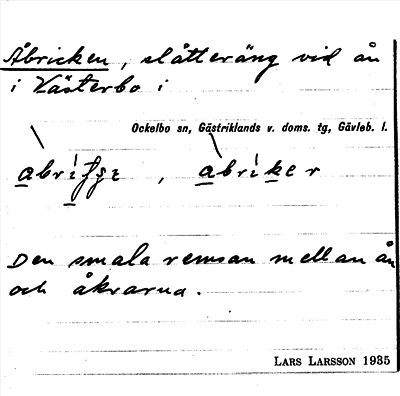 Åbricken, slåtteräng vid ån
i Västerbo i
Ockelbo sn, Gästriklands v. doms. tg, Gävleb. l.
, abriker
Den smala remsan mellan ån
och åkrarna.
LARS LARSSON 1935